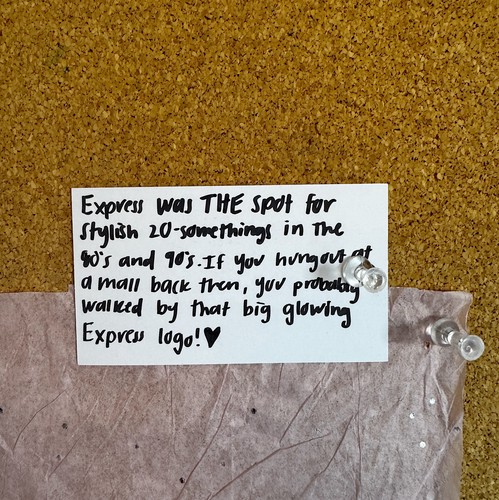 Express was THE spot for
stylish 20-somethings in the
80's and 90's. If you hung out at
a mall back then, you probably
walked by that big glowing
Express logo!♥